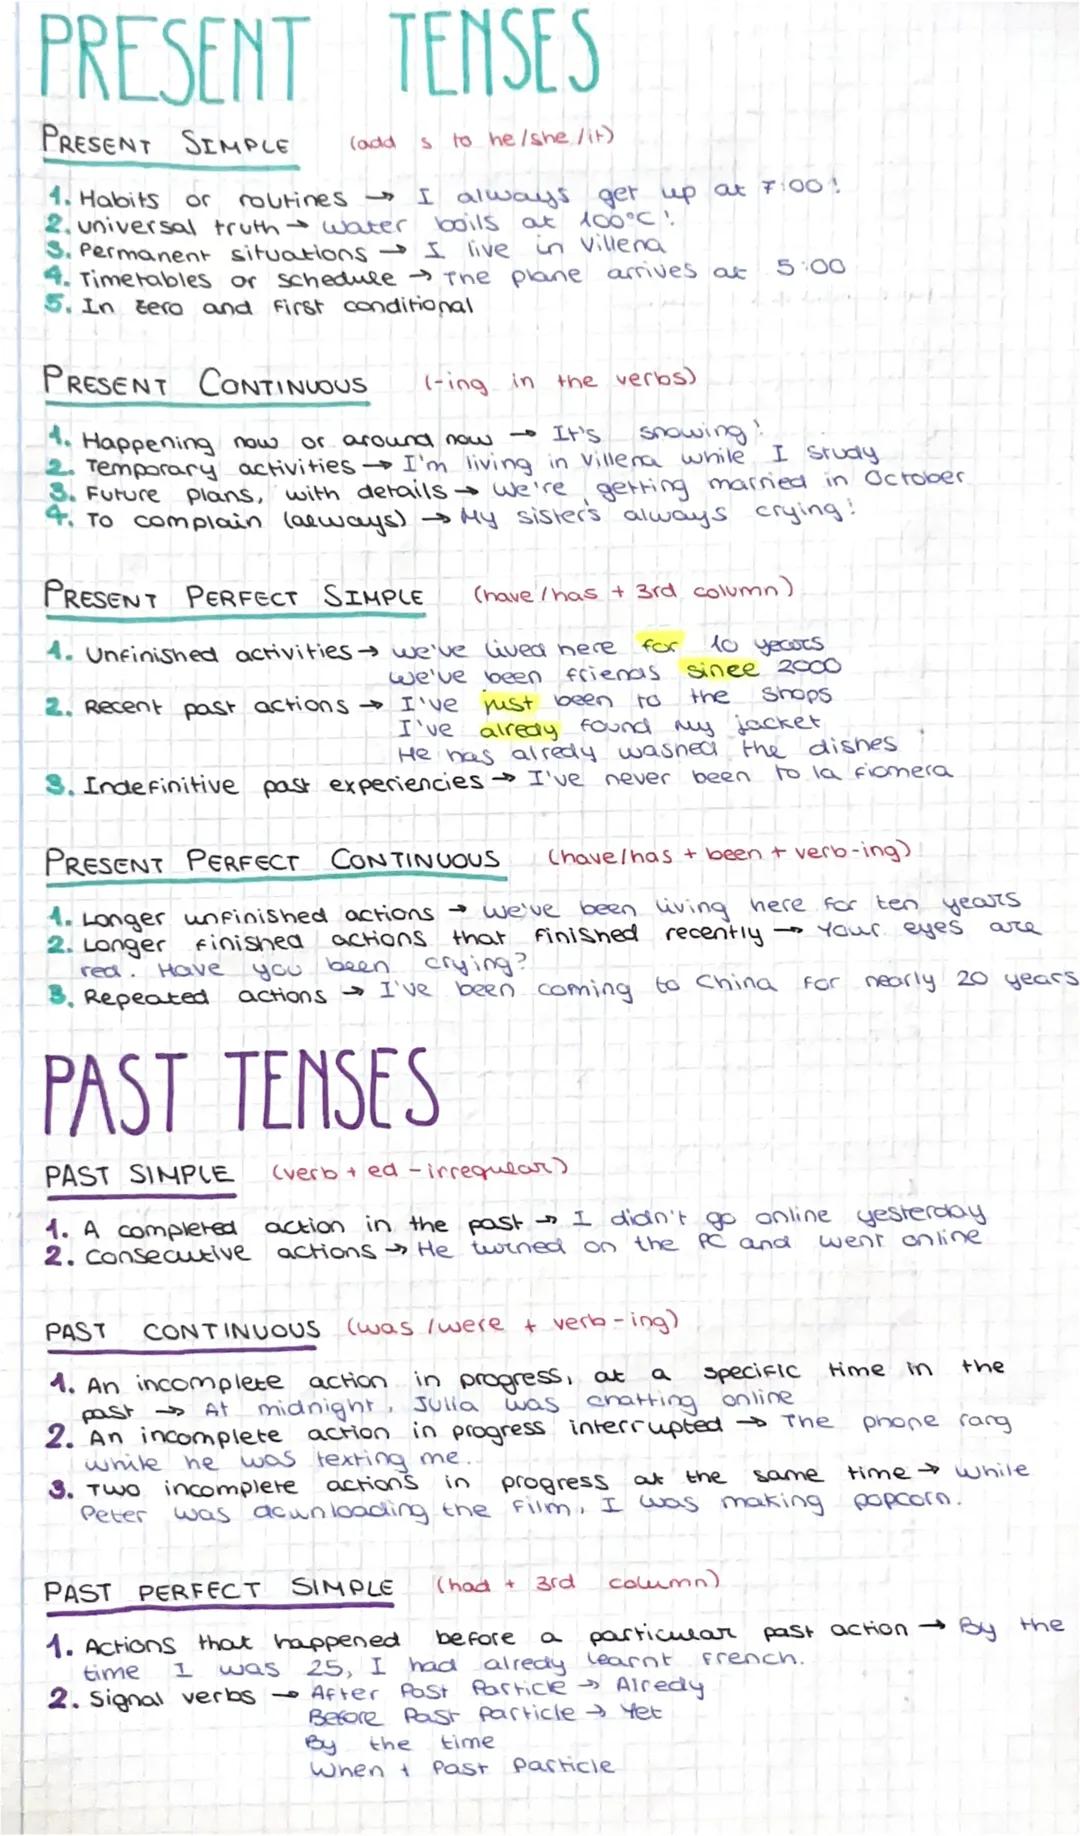 PRESENT TENSES
PRESENT SIMPLE (add s to he/she/it)
1. Habits or routines → I always get up at 7:00!
2. universal truth → water boils at 100°C!
3. Permanent situations → I live in Villena
4. Timetables or schedule → The plane arrives at 5:00
5. In zero and first conditional
PRESENT CONTINUOUS (-ing in the verbs)
1. Happening now or around now → It's snowing!
2. Temporary activities → I'm living in Villena while I study
3. Future plans, with details → We're getting married in October
4. To complain (always) → My sister's always crying!
PRESENT PERFECT SIMPLE (have/has + 3rd column)
1. Unfinished activities → we've lived here for 10 years
we've been friends since 2000
2. Recent past actions → I've just been to the shops
I've alredy found my jacket
He has alredy washed the dishes
3. Indefinitive past experiencies → I've never been to la fiomera
PRESENT PERFECT CONTINUOUS (have/has + been + verb-ing)
1. Longer unfinished actions → we've been living here for ten years
2. Longer finished actions that finished recently → Your eyes are
red. Have you been crying?
3. Repeated actions → I've been coming to China for nearly 20 years
PAST TENSES
PAST SIMPLE (verb + ed - irregular)
1. A completed action in the past → I didn't go online yesterday
2. Consecutive actions → He turned on the PC and went online
PAST CONTINUOUS (was/were + verb-ing)
1. An incomplete action in progress, at a specific time in the
past → At midnight, Julia was chatting online
2. An incomplete action in progress interrupted → The phone rang
while he was texting me.
3. Two incomplete actions in progress at the same time → While
Peter was downloading the film, I was making popcorn.
PAST PERFECT SIMPLE (had + 3rd column)
1. Actions that happened before a particular past action → By the
time I was 25, I had alredy learnt French.
2. Signal verbs → After Past Particle → Alredy
Before Past Particle → Yet
By the time
When + Past Particle